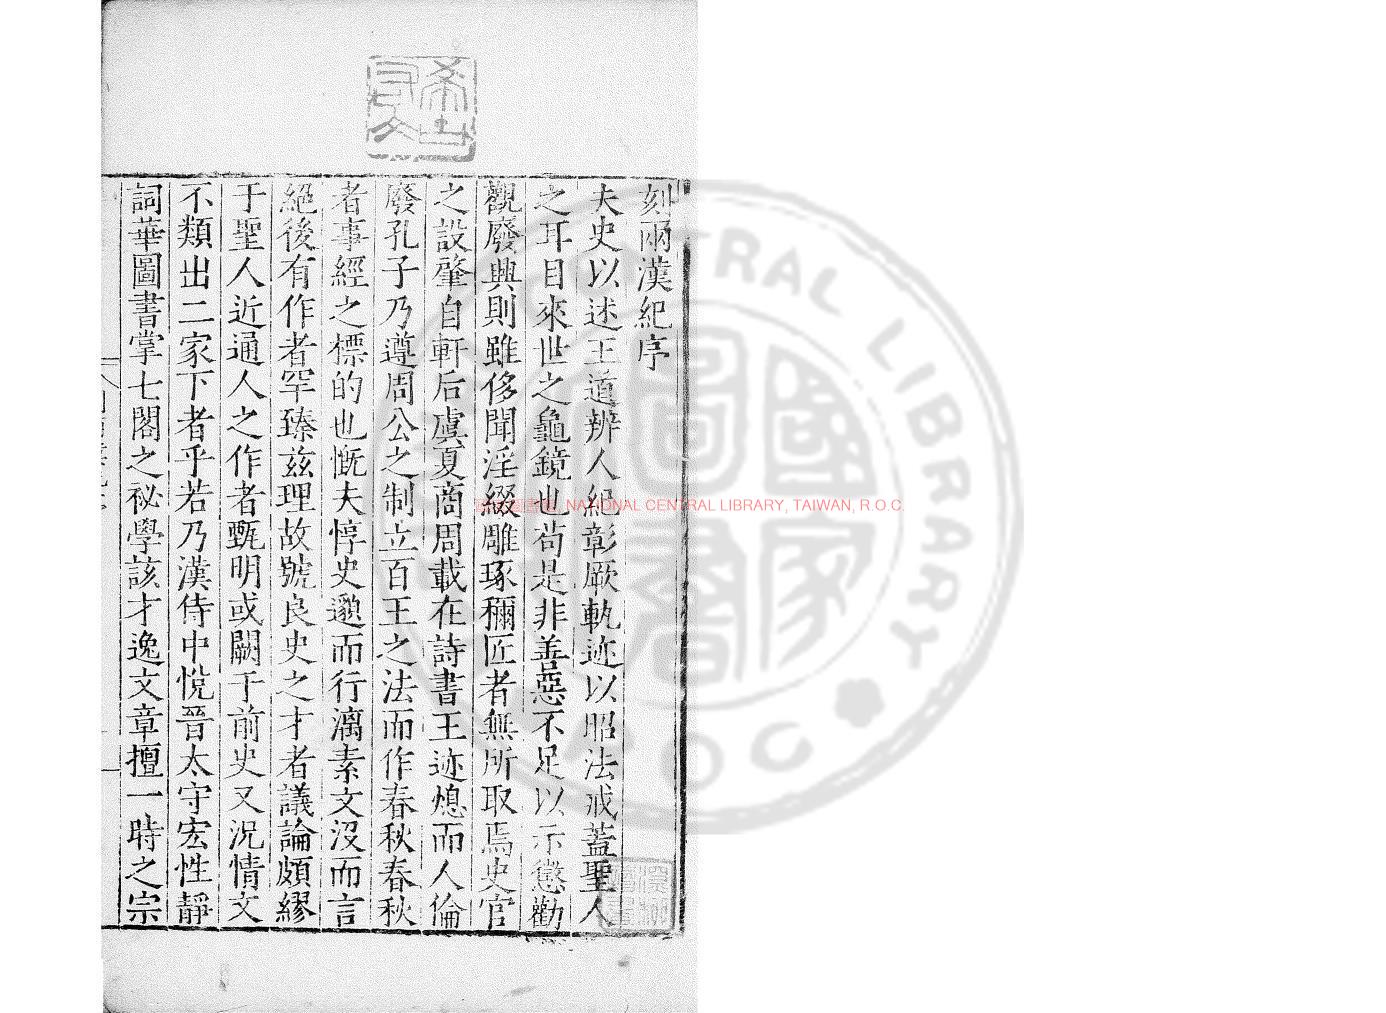 刻兩漢紀序
夫史以述王道辨人紀彰厥軌迹以昭法戒蓋聖人
之耳目來世之龜鏡也苟是非善惡不足以示懲勸
觀廢興則雖侈聞淫綴雕琢穪匠者無所取焉史官
之設肇自軒后虞夏商周載在詩書王迹熄而人倫
廢孔子乃遵周公之制立百王之法而作春秋春秋
者事經之標的也慨夫惇史邈而行漓素文沒而言
絕後有作者罕臻茲理故號良史之才者議論頗繆
于聖人近通人之作者甄明或闕于前史又況情文
不類出二家下者乎若乃漢侍中悅晉太守宏性靜
詞華圖書掌七閣之祕學該才逸文章擅一時之宗
國家圖書館, NATIONAL CENTRAL LIBRARY, TAIWAN, R.O.C.
CENTRAL LIBRARY
ROC